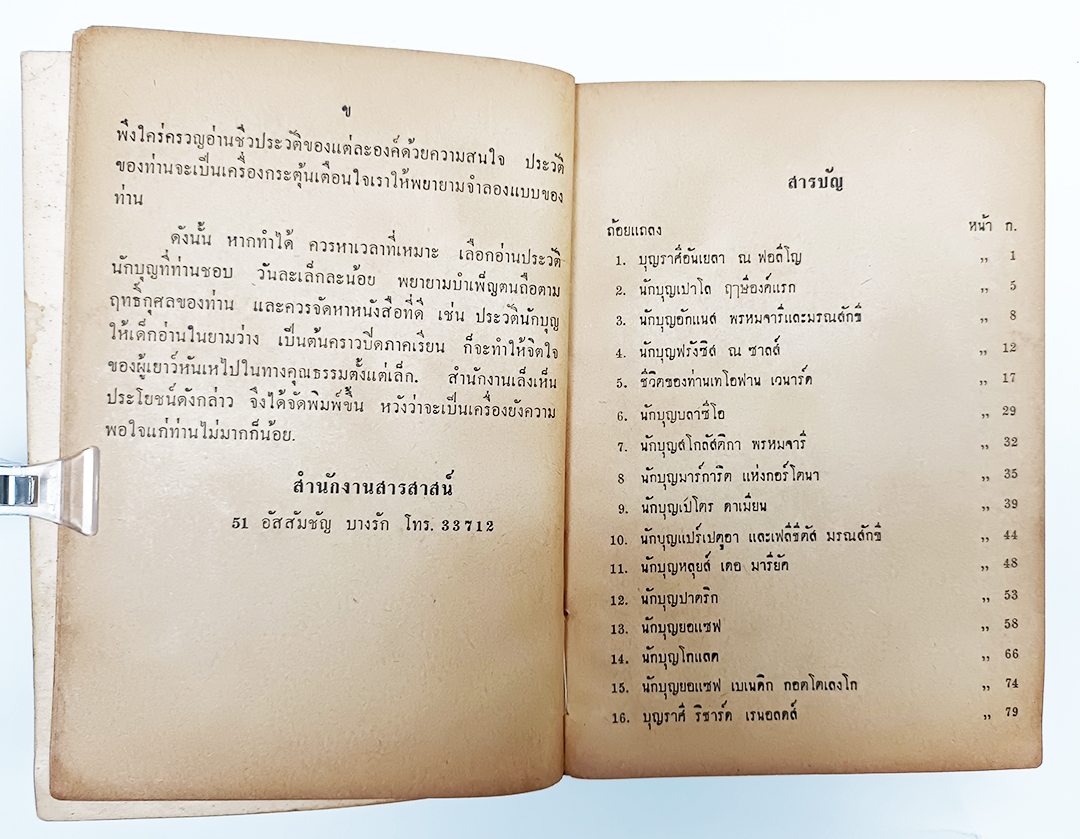 ข
พึงใคร่ครวญอ่านชีวประวัติของแต่ละองค์ด้วยความสนใจ ประวัติ
ของท่านจะเป็นเครื่องกระตุ้นเตือนใจเราให้พยายามจำลองแบบของ
ท่าน
ดังนั้น หากทำได้ ควรหาเวลาที่เหมาะ เลือกอ่านประวัติ
นักบุญที่ท่านชอบ วันละเล็กละน้อย พยายามบำเพ็ญตนถือตาม
ฤทธิ์กุศลของท่าน และควรจัดหาหนังสือที่ดี เช่น ประวัตินักบุญ
ให้เด็กอ่านในยามว่าง เป็นต้นคราวปิดภาคเรียน ก็จะทำให้จิตใจ
ของผู้เยาว์หันเหไปในทางคุณธรรมตั้งแต่เล็ก. สำนักงานเล็งเห็น
ประโยชน์ดังกล่าว จึงได้จัดพิมพ์ขึ้น หวังว่าจะเป็นเครื่องยังความ
พอใจแก่ท่านไม่มากก็น้อย.
สำนักงานสารสาสน์
51 อัสสัมชัญ บางรัก โทร. 33712
สารบัญ
ถ้อยแถลง หน้า ก.
1. บุญราศีอันเยลา ณ ฟอลีโญ ,, 1
2. นักบุญเปาโล ฤๅษีองค์แรก ,, 5
3. นักบุญอักแนส พรหมจารีและมรณสักขี ,, 8
4. นักบุญฟรังซิส ณ ซาลส์ ,, 12
5. ชีวิตของท่านเทโอฟาน เวนาร์ด ,, 17
6. นักบุญบลาซีโอ ,, 29
7. นักบุญสโกลัสติกา พรหมจารี ,, 32
8 นักบุญมาร์การิต แห่งกอร์โตนา ,, 35
9. นักบุญเปโตร ดาเมียน ,, 39
10. นักบุญแปร์เปตุอา และเฟลีซีตัส มรณสักขี ,, 44
11. นักบุญหลุยส์ เดอ มารียัค ,, 48
12. นักบุญปาตริก ,, 53
13. นักบุญยอแซฟ ,, 58
14. นักบุญโกแลต ,, 66
15. นักบุญยอแซฟ เบเนดิก กอตโตเลงโก ,, 74
16. บุญราศี ริชาร์ด เรนอลดส์ ,, 79